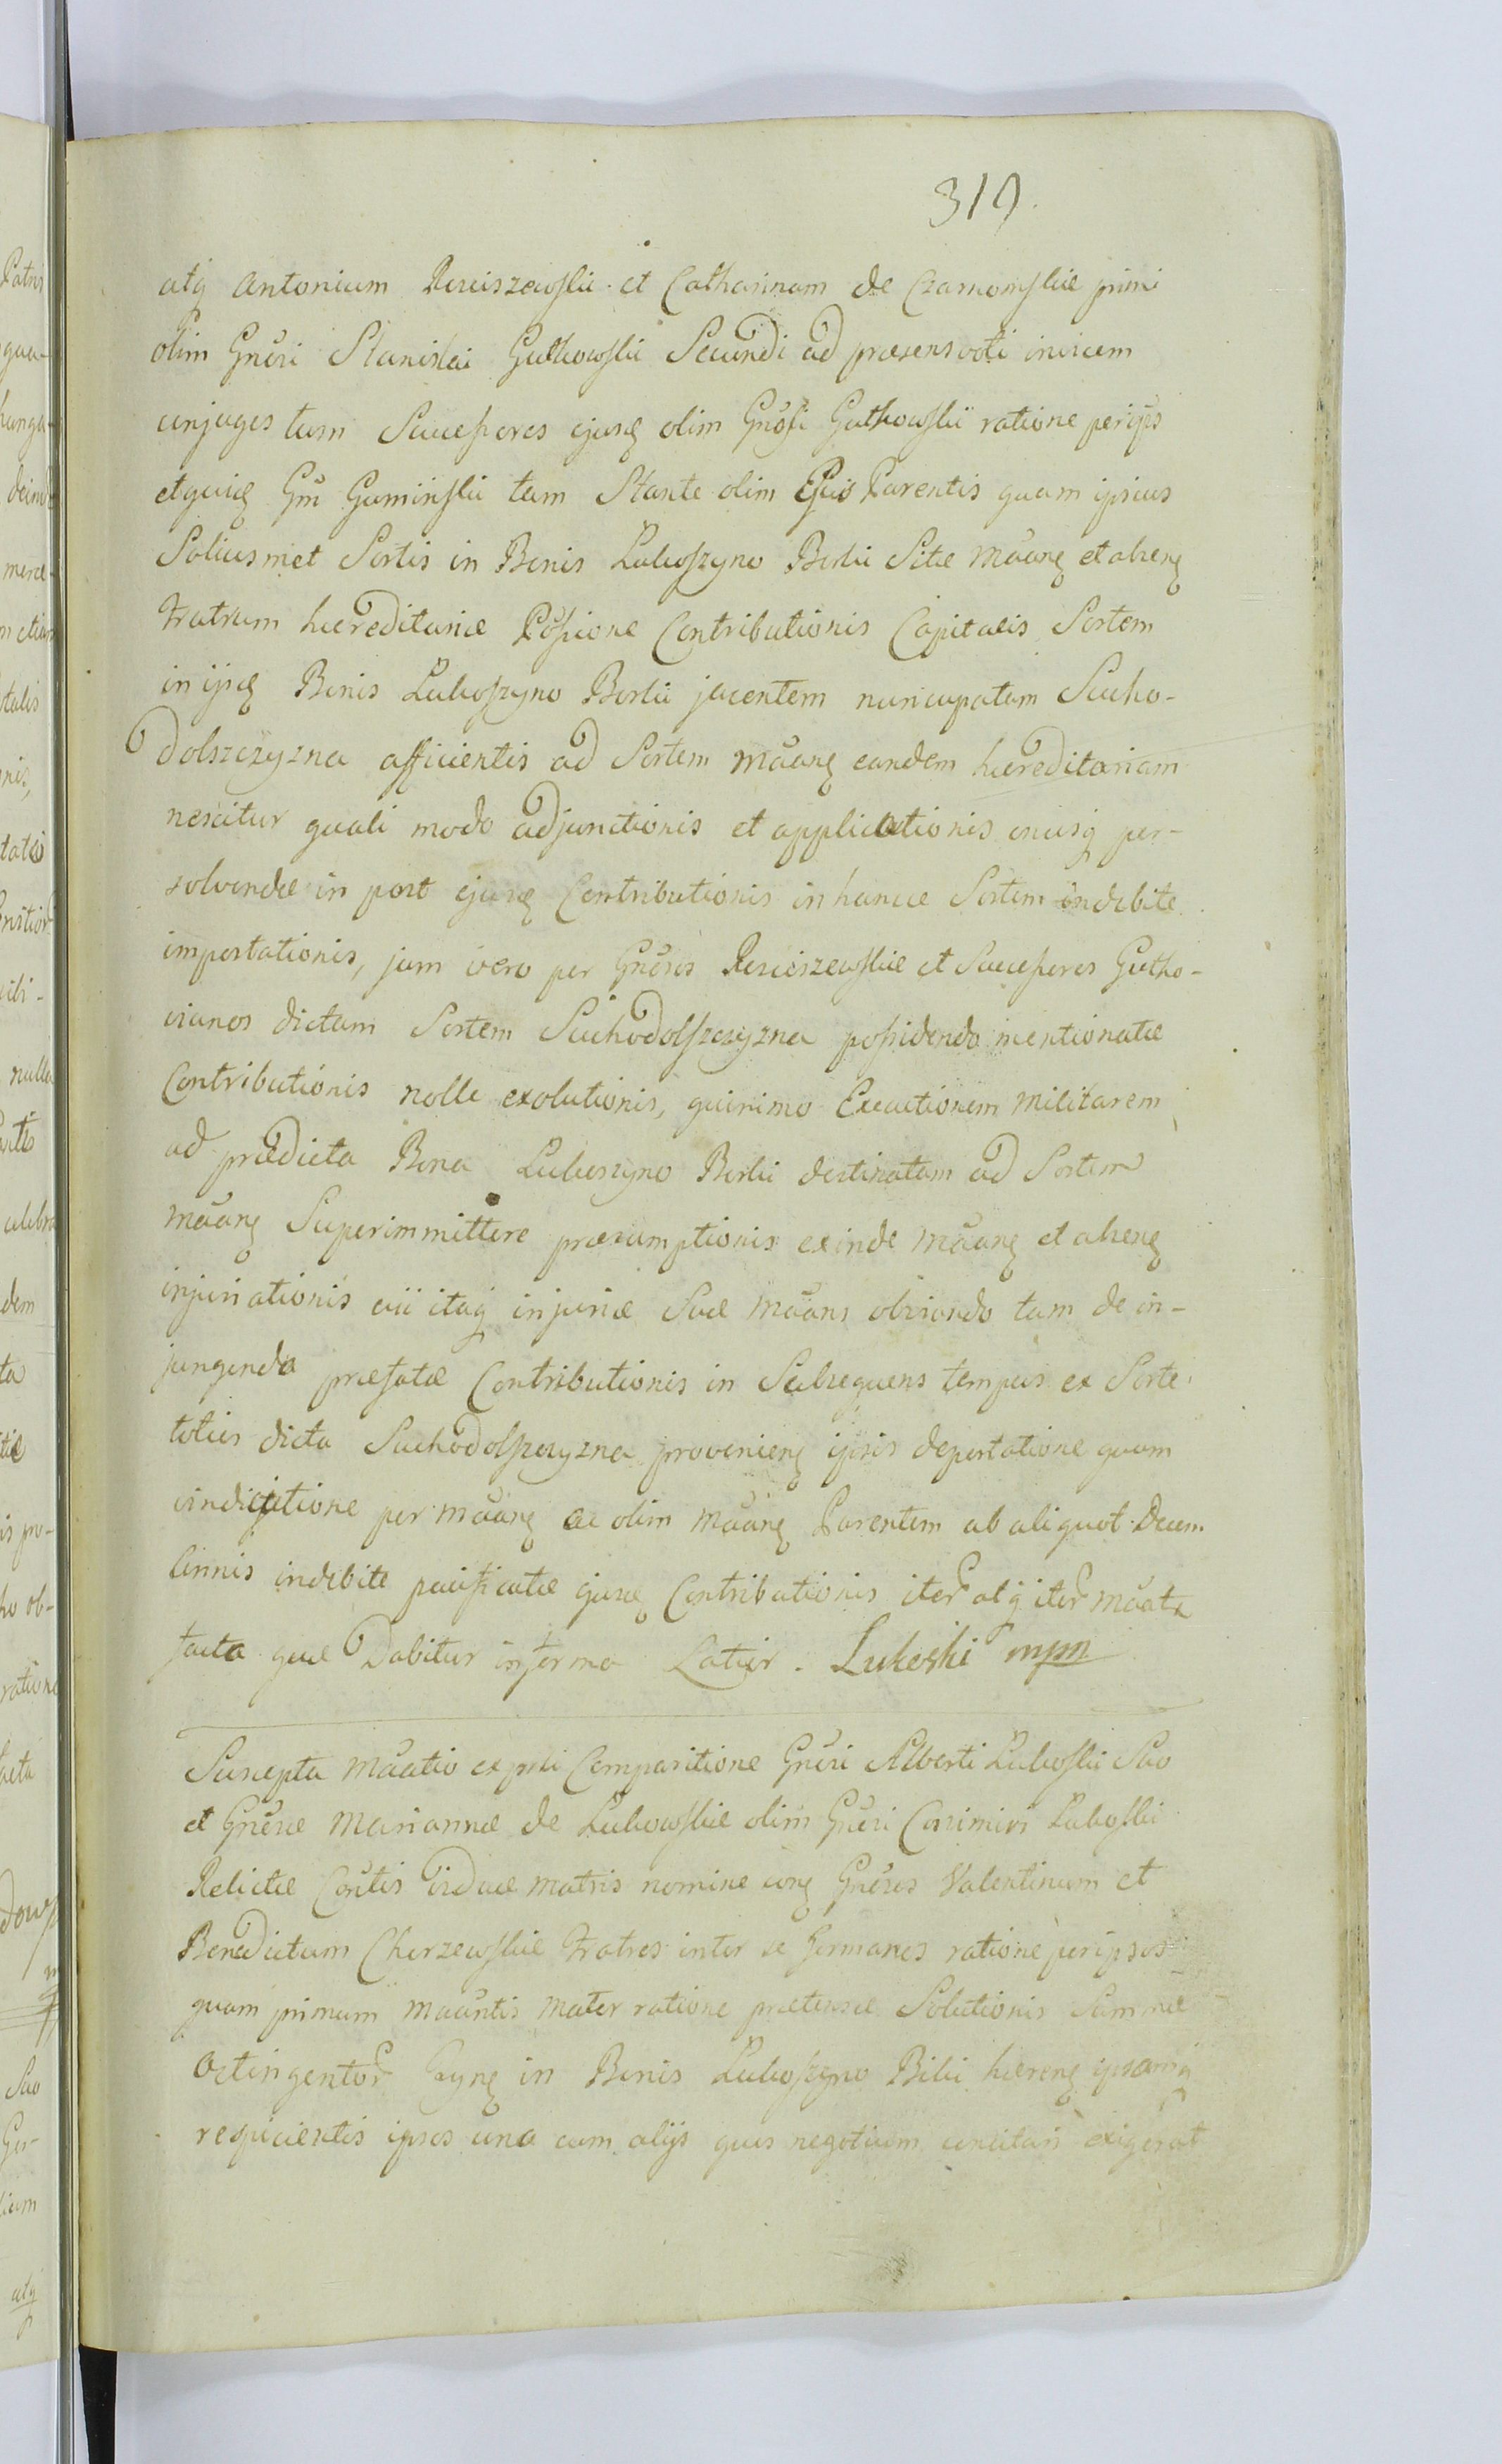 319.
atq Antonium Rzeiszewskie et Catharinam de Czamomskie primi
olim Gneri Stanislai Gutkowskii Secundi ad praesens voti invicem
conjuges tum Successores ejusq olim Gnosi Gutkowskii ratione per ipsos
Gni Guminskii tam Stante olim Ejus Parentis quam ipsius
Soliusmet Sortis in Bonis Luboszyno Borki Sitae māang et aheng
Fratrum haereditariae Possione Contributionis Capitalis Sortem
in ijsq Bonis Luboszyno Borki jacentem nuncupatam Sucho-
dolszczyzna afficientis ad Sortem māang eandem haereditariam
nescitur quali modo adjunctionis et applicationis onusq per-
solvendae in post ejusq Contributionis in hancce Sortem indebite
importationis, jam vero per Gneros Rzeiszewskie et Successores Gutko-
vianos dictam Sortem Suchodolszczyzna possidendo mentionatae
Contributionis nolle exolutionis, quinimo Executionem militarem
ad praedicta Bona Luboszyno Borki destinatam ad Sortem
māang Superimmittere praesumptionis exinde māang et aheng
injuriationis cui itaq injuriae Suae māans obviando tam de in-
jungenda praefatae Contributionis in Subsequens tempus ex Sorte
toties dicta Suchodolszczyzna provenieng ipsis deportatione quam
vindicatione per māang ac olim māang Parentem ab aliquot Decem
Annis indebite pacificatae ejusq Contributionis iter atq iter māata
facta quae Dabitur in forma Latior. Lukoski mpm
Suscepta māatio ex prsti Comparitione Gneri Alberti Luboskii Suo
et Gnerae Mariannae de Lubowskie olim Gneri Casimiri Luboskii
Relictae Cortis viduae matris nomine cong Gneros Valentinum et
Benedictum Chorzewskie Fratres inter se Germanos ratione per ipsos
quam primum māantis mater ratione praetensae Solutionis Summae
Octingentor in Bonis Luboszyno Bibi haereng ipsamq
respicientis ipsos una cum alijs quos negotium concitari exigerat